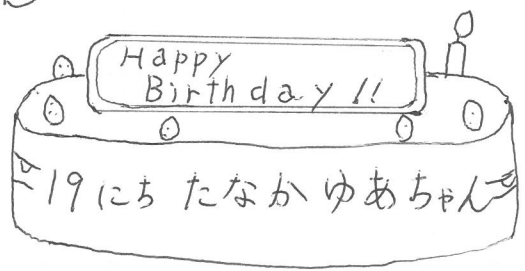 Happy
Birthday!!
19にち たなか ゆあちゃん